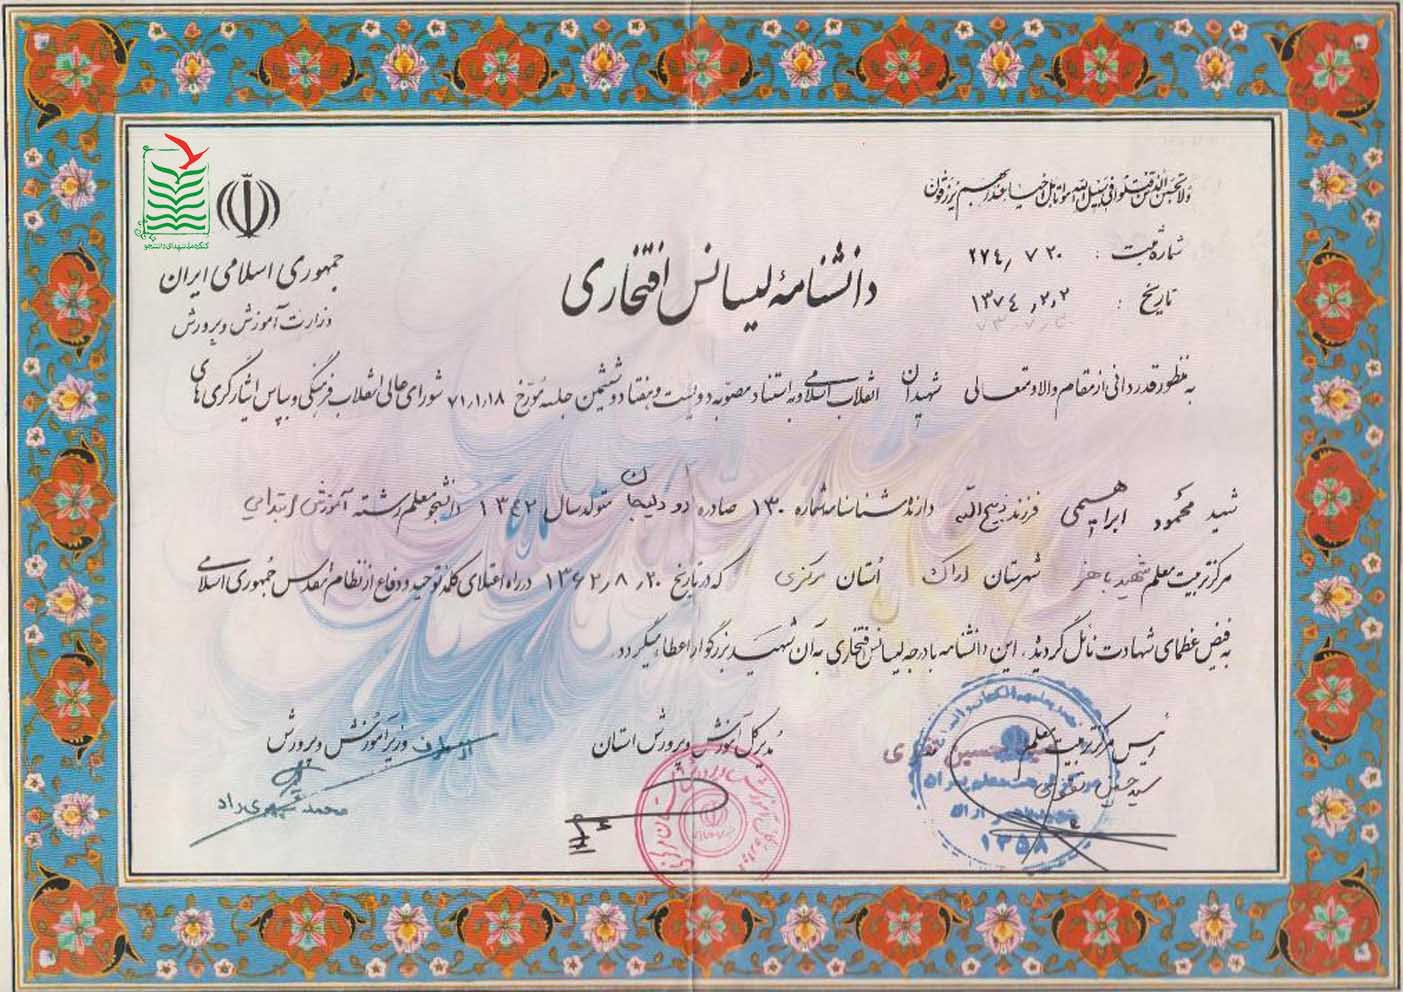 ولا تحسبن الذین قتلوا فی سبیل الله امواتا بل احیاء عند ربهم یرزقون
کنگره ملی شهدای دانشجو
جمهوری اسلامی ایران
وزارت آموزش و پرورش
شماره ثبت :
تاریخ : ۱۳۷۴٫۲٫۲
دانشنامهٔ لیسانس افتخاری
به منظور قدردانی از مقام والا و متعالی شهیدان انقلاب اسلامی و به استناد مصوبه دویست و هفتاد و ششمین جلسه مورّخ ۷۱٫۱٫۱۸ شورای عالی انقلاب فرهنگی و بپاس ایثارگری های
شهید محمود ابراهیمی فرزند ذبیح الله دارندهٔ شناسنامه شماره ۱۳۰ صادره از دلیجان متولد سال ۱۳۴۲ دانشجو معلم رشته آموزش ابتدایی
مرکز تربیت معلم شهید باهنر شهرستان اراک استان مرکزی که در تاریخ ۱۳۶۲٫۸٫۳۰ در راه اعتلای کلمهٔ توحید و دفاع از نظام مقدس جمهوری اسلامی
به فیض عظمای شهادت نائل گردیده، این دانشنامه با درجه لیسانس افتخاری به آن شهید بزرگوار اعطاء میگردد.
رئیس مرکز تربیت معلم
مدیر کل آموزش و پرورش استان
از طرف وزیر آموزش و پرورش
۱۳۵۸